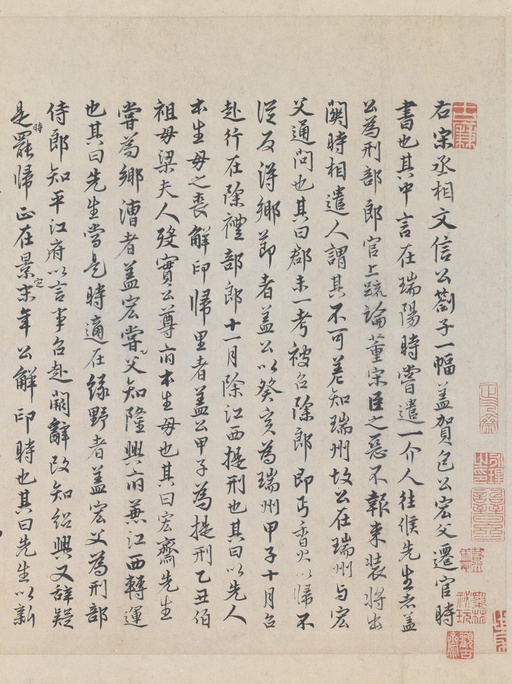 右宋丞相文信公劄子一幅蓋賀包公宏父遷官時
書也其中言在瑞陽時嘗遣一介人往候先生者蓋
公為刑部郎官上疏論董宋臣之惡不報束裝將出
關時相遣人謂其不可差知瑞州故公在瑞州與宏
父通問也其曰郡未一考被召除郎即丐香火以歸不
從反得鄉節者蓋公以癸亥為瑞州甲子十月召
赴行在除禮部郎十一月除江西提刑也其曰以先人
本生母之喪解印歸里者蓋公甲子為提刑乙丑伯
祖母梁夫人歿實公尊府本生母也其曰宏齋先生
嘗為鄉漕者蓋宏父嘗知隆興府兼江西轉運
也其曰先生當是時適在綠野者蓋宏父為刑部
侍郎知平江府以言事召赴闕辭改知紹興又辭疑
是時罷歸正在景定末年公解印時也其曰先生以新